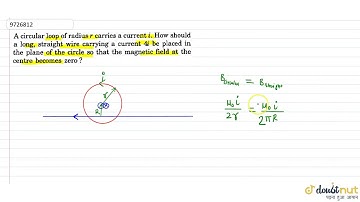 9726812
A circular loop of radius r carries a current i. How should
a long, straight wire carrying a current 4i be placed in
the plane of the circle so that the magnetic field at the
centre becomes zero ?
i
r
R
B = B straight
μ₀ i / 2r = μ₀ i / 2πR
doubtnut